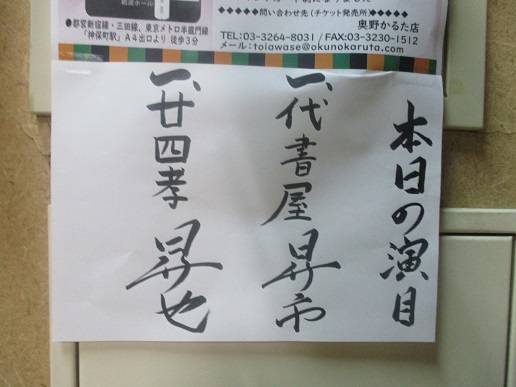 ●都営新宿線・三田線、東京メトロ半蔵門線
「神保町駅」A4出口より 徒歩3分
◆◆◆◆◆問い合わせ先(チケット発売所)◆◆◆◆◆
奥野かるた店
TEL:03-3264-8031/FAX:03-3230-1512
メール:toiawase@okunokaruta.com
本日の演目
一、代書屋 昇市
一、廿四孝 昇也